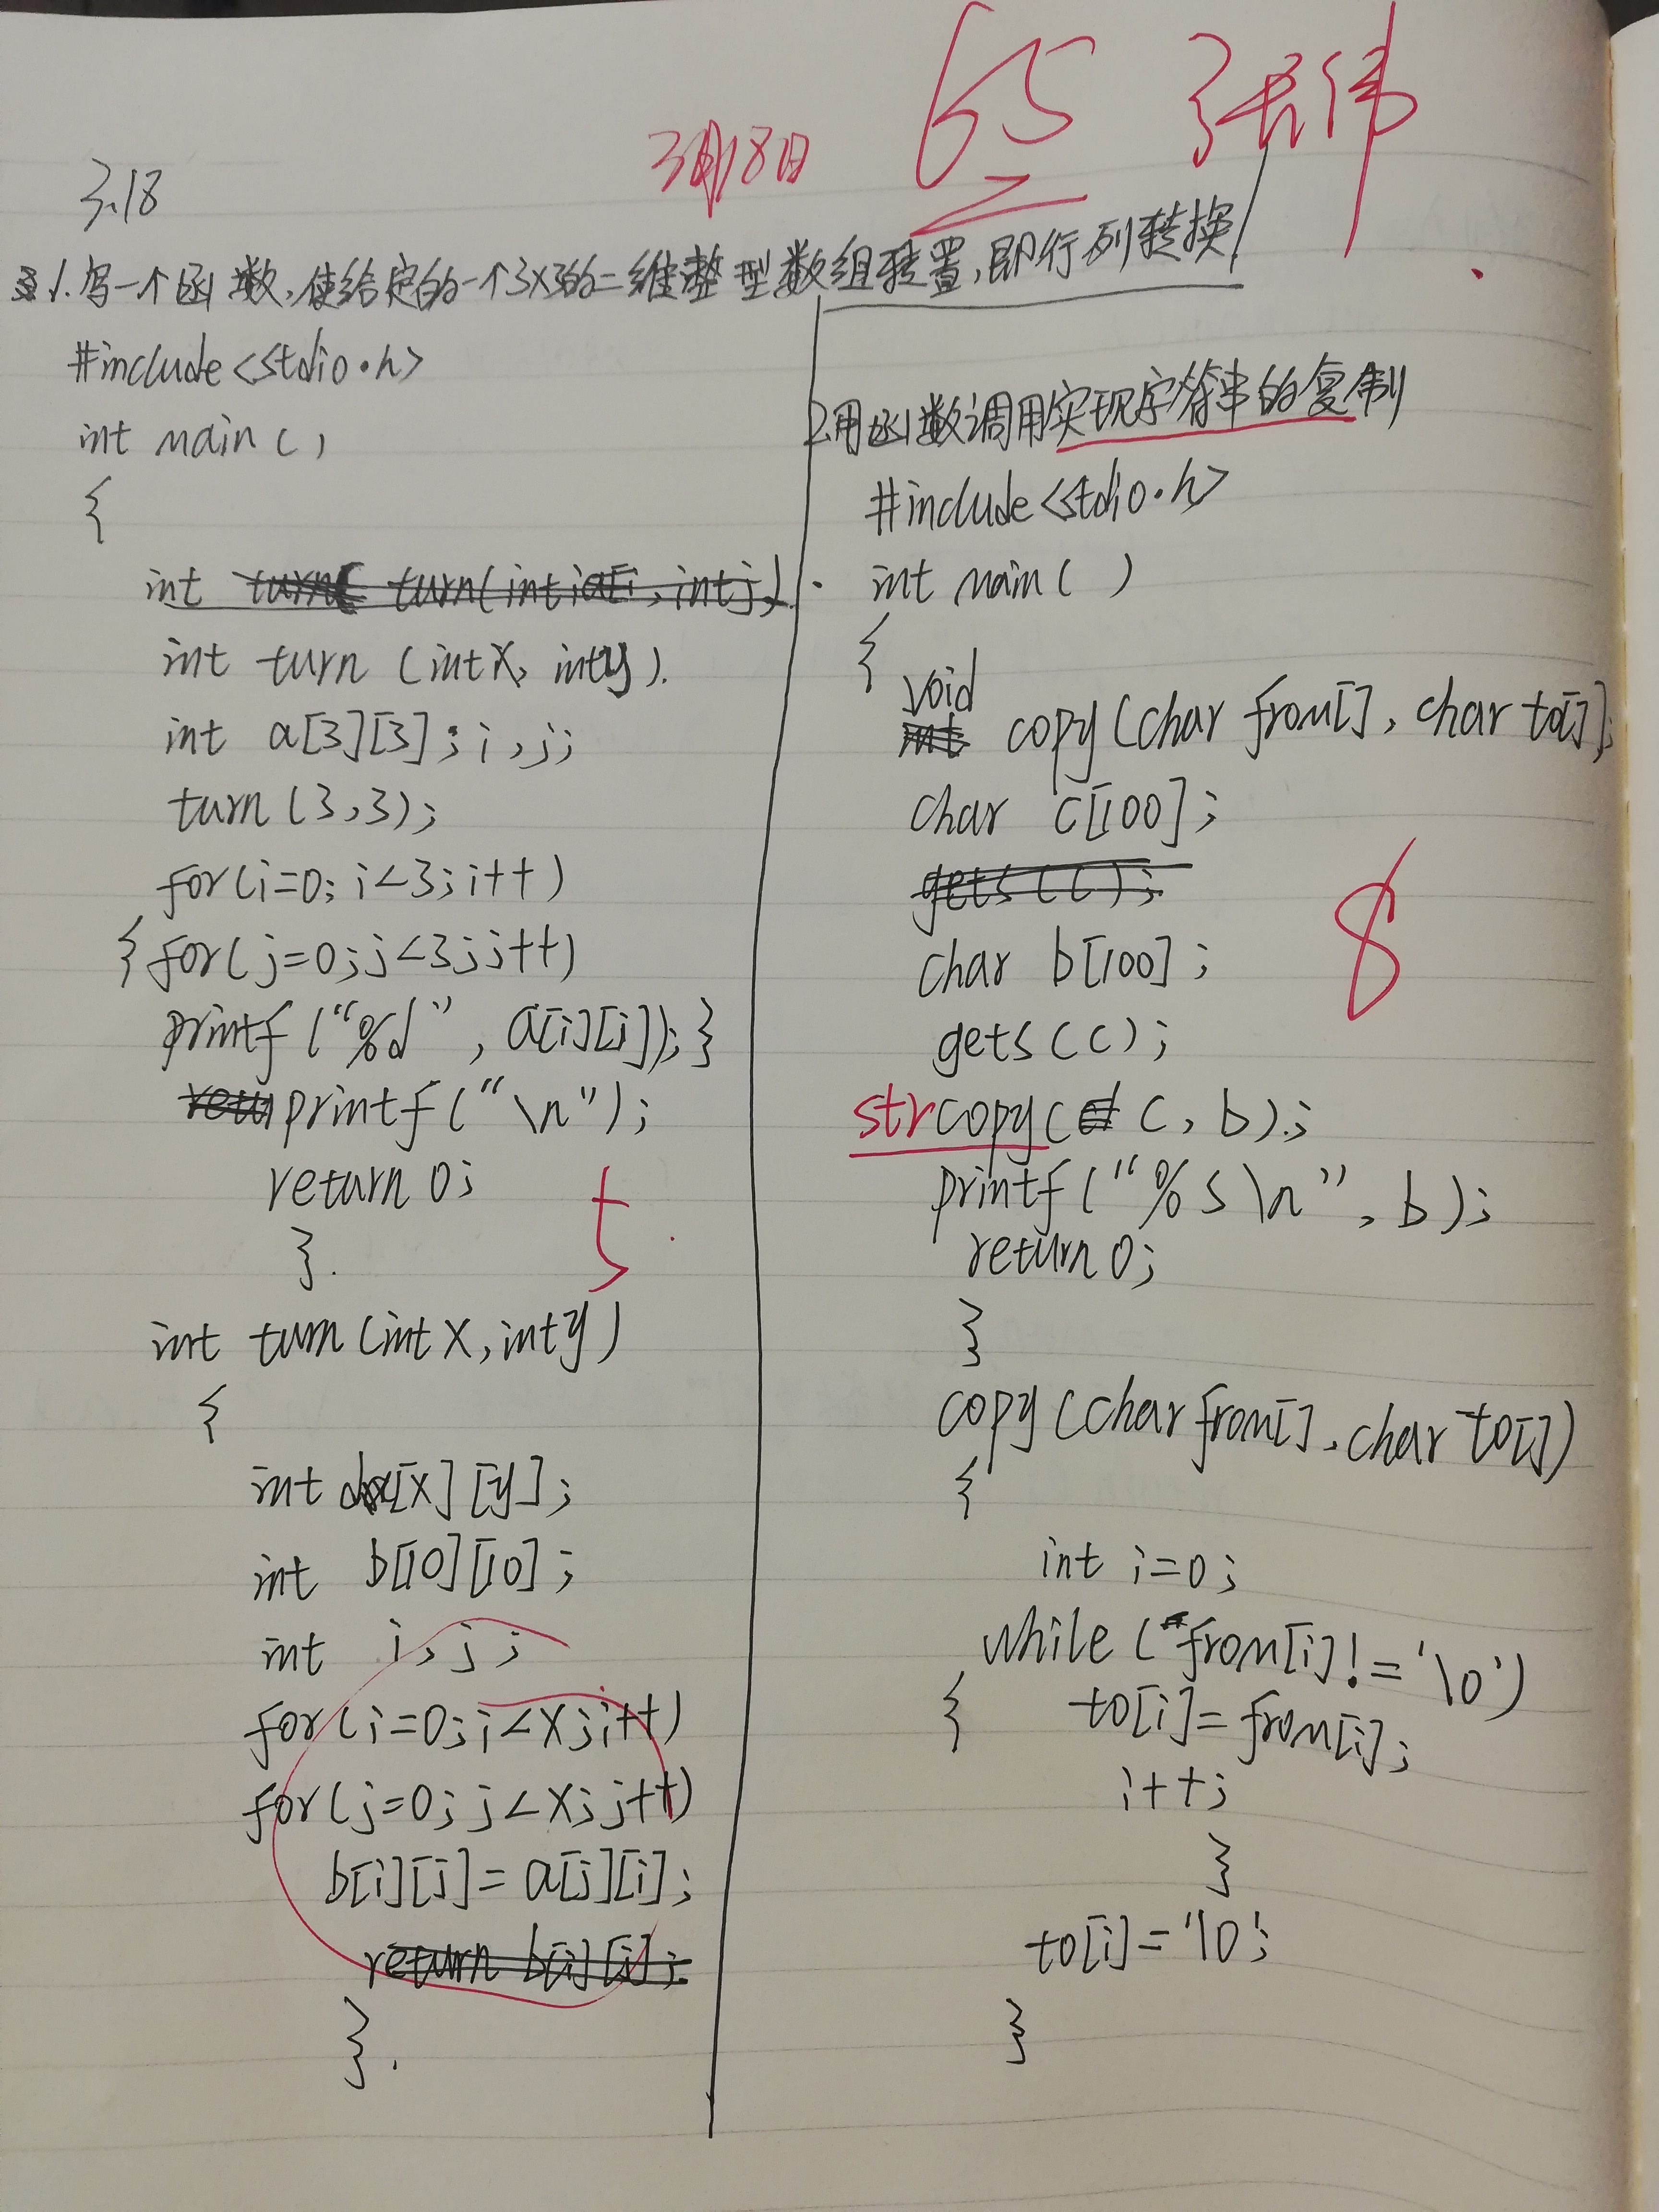 3月18日 65 张伟
3.18
1.写一个函数,使给定的一个3X3的二维整型数组转置,即行列转换
#include<stdio.h>
int main()
{
int turn( turn(int ia[i, int j)
int turn (int x, int y).
int a[3][3];i,j;
turn(3,3);
for(i=0;i<3;i++)
{for(j=0;j<3;j++)
printf("%d",a[i][j]);}
printf("\n");
return 0;
}.
5
int turn(int x,int y)
{
int a[x][y];
int b[10][10];
int i,j;
for(i=0;i<x;i++)
for(j=0;j<x;j++)
b[i][j]=a[j][i];
return b[i][j];
}.
2用函数调用实现字符串的复制
#include<stdio.h>
int main()
{
void
int copy(char from[],char to[]);
char c[100];
gets(c);
char b[100];
8
gets(c);
strcopy(c,b);
printf("%s\n",b);
return 0;
}
copy(char from[],char to[])
{
int i=0;
while(from[i]!='\0')
{ to[i]=from[i];
i++;
}
to[i]='\0';
}